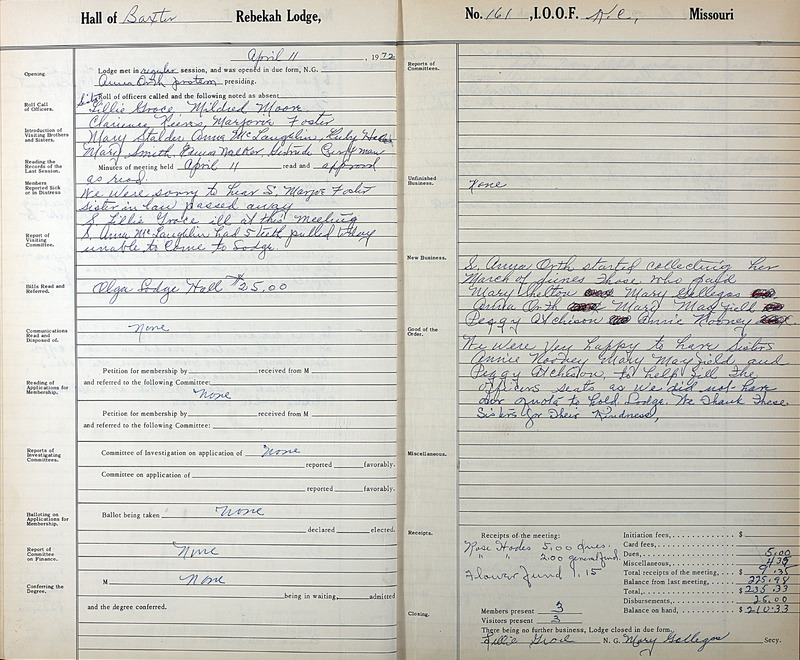 Hall of Baxter Rebekah Lodge,
April 11, 1972
Opening. Lodge met in regular session, and was opened in due form, N.G.
Anna Orth protem presiding.
Roll Call of Officers. Sister Roll of officers called and the following noted as absent
Lillie Groce, Mildred Moon
Clarence Marjorie Foster
Introduction of Visiting Brothers and Sisters. Mary Stalder, Anna McLaughlin, Ruby
Mary Smith, Edna Walker, Gertrude
Reading the Records of the Last Session. Minutes of meeting held April 11 read and approved
as read
Members Reported Sick or in Distress We were sorry to hear S. Marjor Foster
sister in law passed away
S. Lillie Groce ill at this meeting
Report of Visiting Committee. S. Anna McLaughlin had 5 teeth pulled today
unable to come to Lodge.
Bills Read and Referred. Olga Lodge Hall $25.00
Communications Read and Disposed of. None
Petition for membership by received from M
and referred to the following Committee:
Reading of Applications for Membership. None
Petition for membership by received from M
and referred to the following Committee:
Reports of Investigating Committees. Committee of Investigation on application of None
reported favorably.
Committee on application of
reported favorably.
Balloting on Applications for Membership. Ballot being taken None
declared elected.
Report of Committee on Finance. None
Conferring the Degree. M None
being in waiting, admitted
and the degree conferred.
No. 161, I.O.O.F. K.C., Missouri
Reports of Committees.
Unfinished Business. None
New Business. S. Anna Orth started collecting her
March of Dimes those who paid
Mary Shelton Mary Gallegas
Anna Orth Mary Mayfield
Peggy Atchison Annie Rooney
Good of the Order. We were very happy to have Sisters
Annie Rooney Mary Mayfield and
Peggy Atchison, to help fill the
officers seats as we did not have
our quota to hold Lodge. We Thank These
Sisters for Their Kindness,
Miscellaneous.
Receipts. Receipts of the meeting:
Rose Hodes 5.00 dues.
" " 2.00 general fund.
Flower fund 1.15
Initiation fees, $
Card fees,
Dues, 5.00
Miscellaneous, 4.35
Total receipts of the meeting, $ 9.35
Balance from last meeting, 225.98
Total, $ 235.33
Disbursements, 25.00
Balance on hand, $ 210.33
Members present 3
Visitors present 3
Closing. There being no further business, Lodge closed in due form,
Lillie Groce N. G. Mary Gallegas Secy.